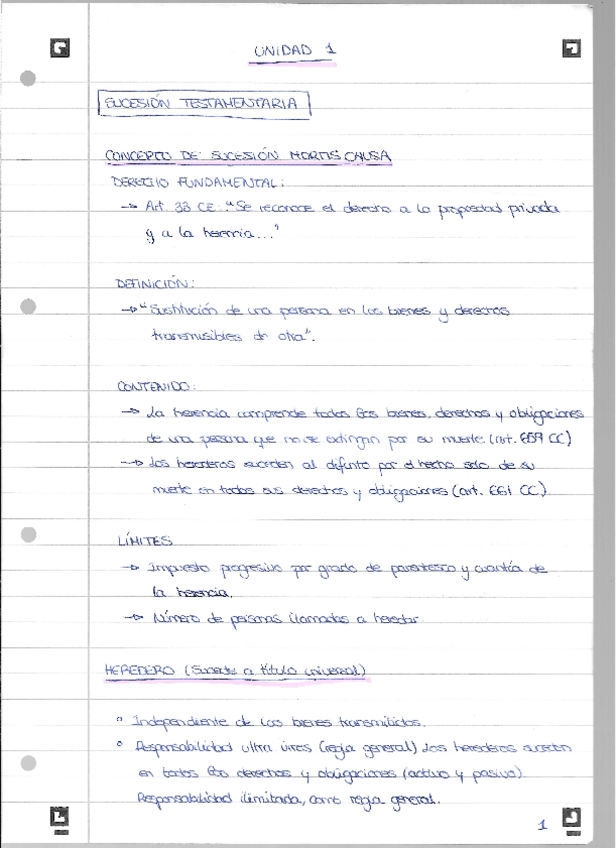 UNIDAD 1
SUCESIÓN TESTAMENTARIA
CONCEPTO DE SUCESIÓN MORTIS CAUSA
DERECHO FUNDAMENTAL:
→ Art. 33 CE "Se reconoce el derecho a la propiedad privada
y a la herencia..."
DEFINICIÓN:
→ "Sustitución de una persona en los bienes y derechos
transmisibles de otra".
CONTENIDO:
→ La herencia comprende todos los bienes, derechos y obligaciones
de una persona que no se extingan por su muerte (art. 659 CC)
→ Los herederos suceden al difunto por el hecho solo de su
muerte en todos sus derechos y obligaciones (art. 661 CC)
LÍMITES
→ Impuesto progresivo por grado de parentesco y cuantía de
la herencia.
→ Número de personas llamadas a heredar
HEREDERO (Sucede a título universal)
° Independiente de los bienes transmitidos.
° Responsabilidad ultra vires (regla general) Los herederos suceden
en todos los derechos y obligaciones (activo y pasivo)
Responsabilidad ilimitada, como regla general.
1